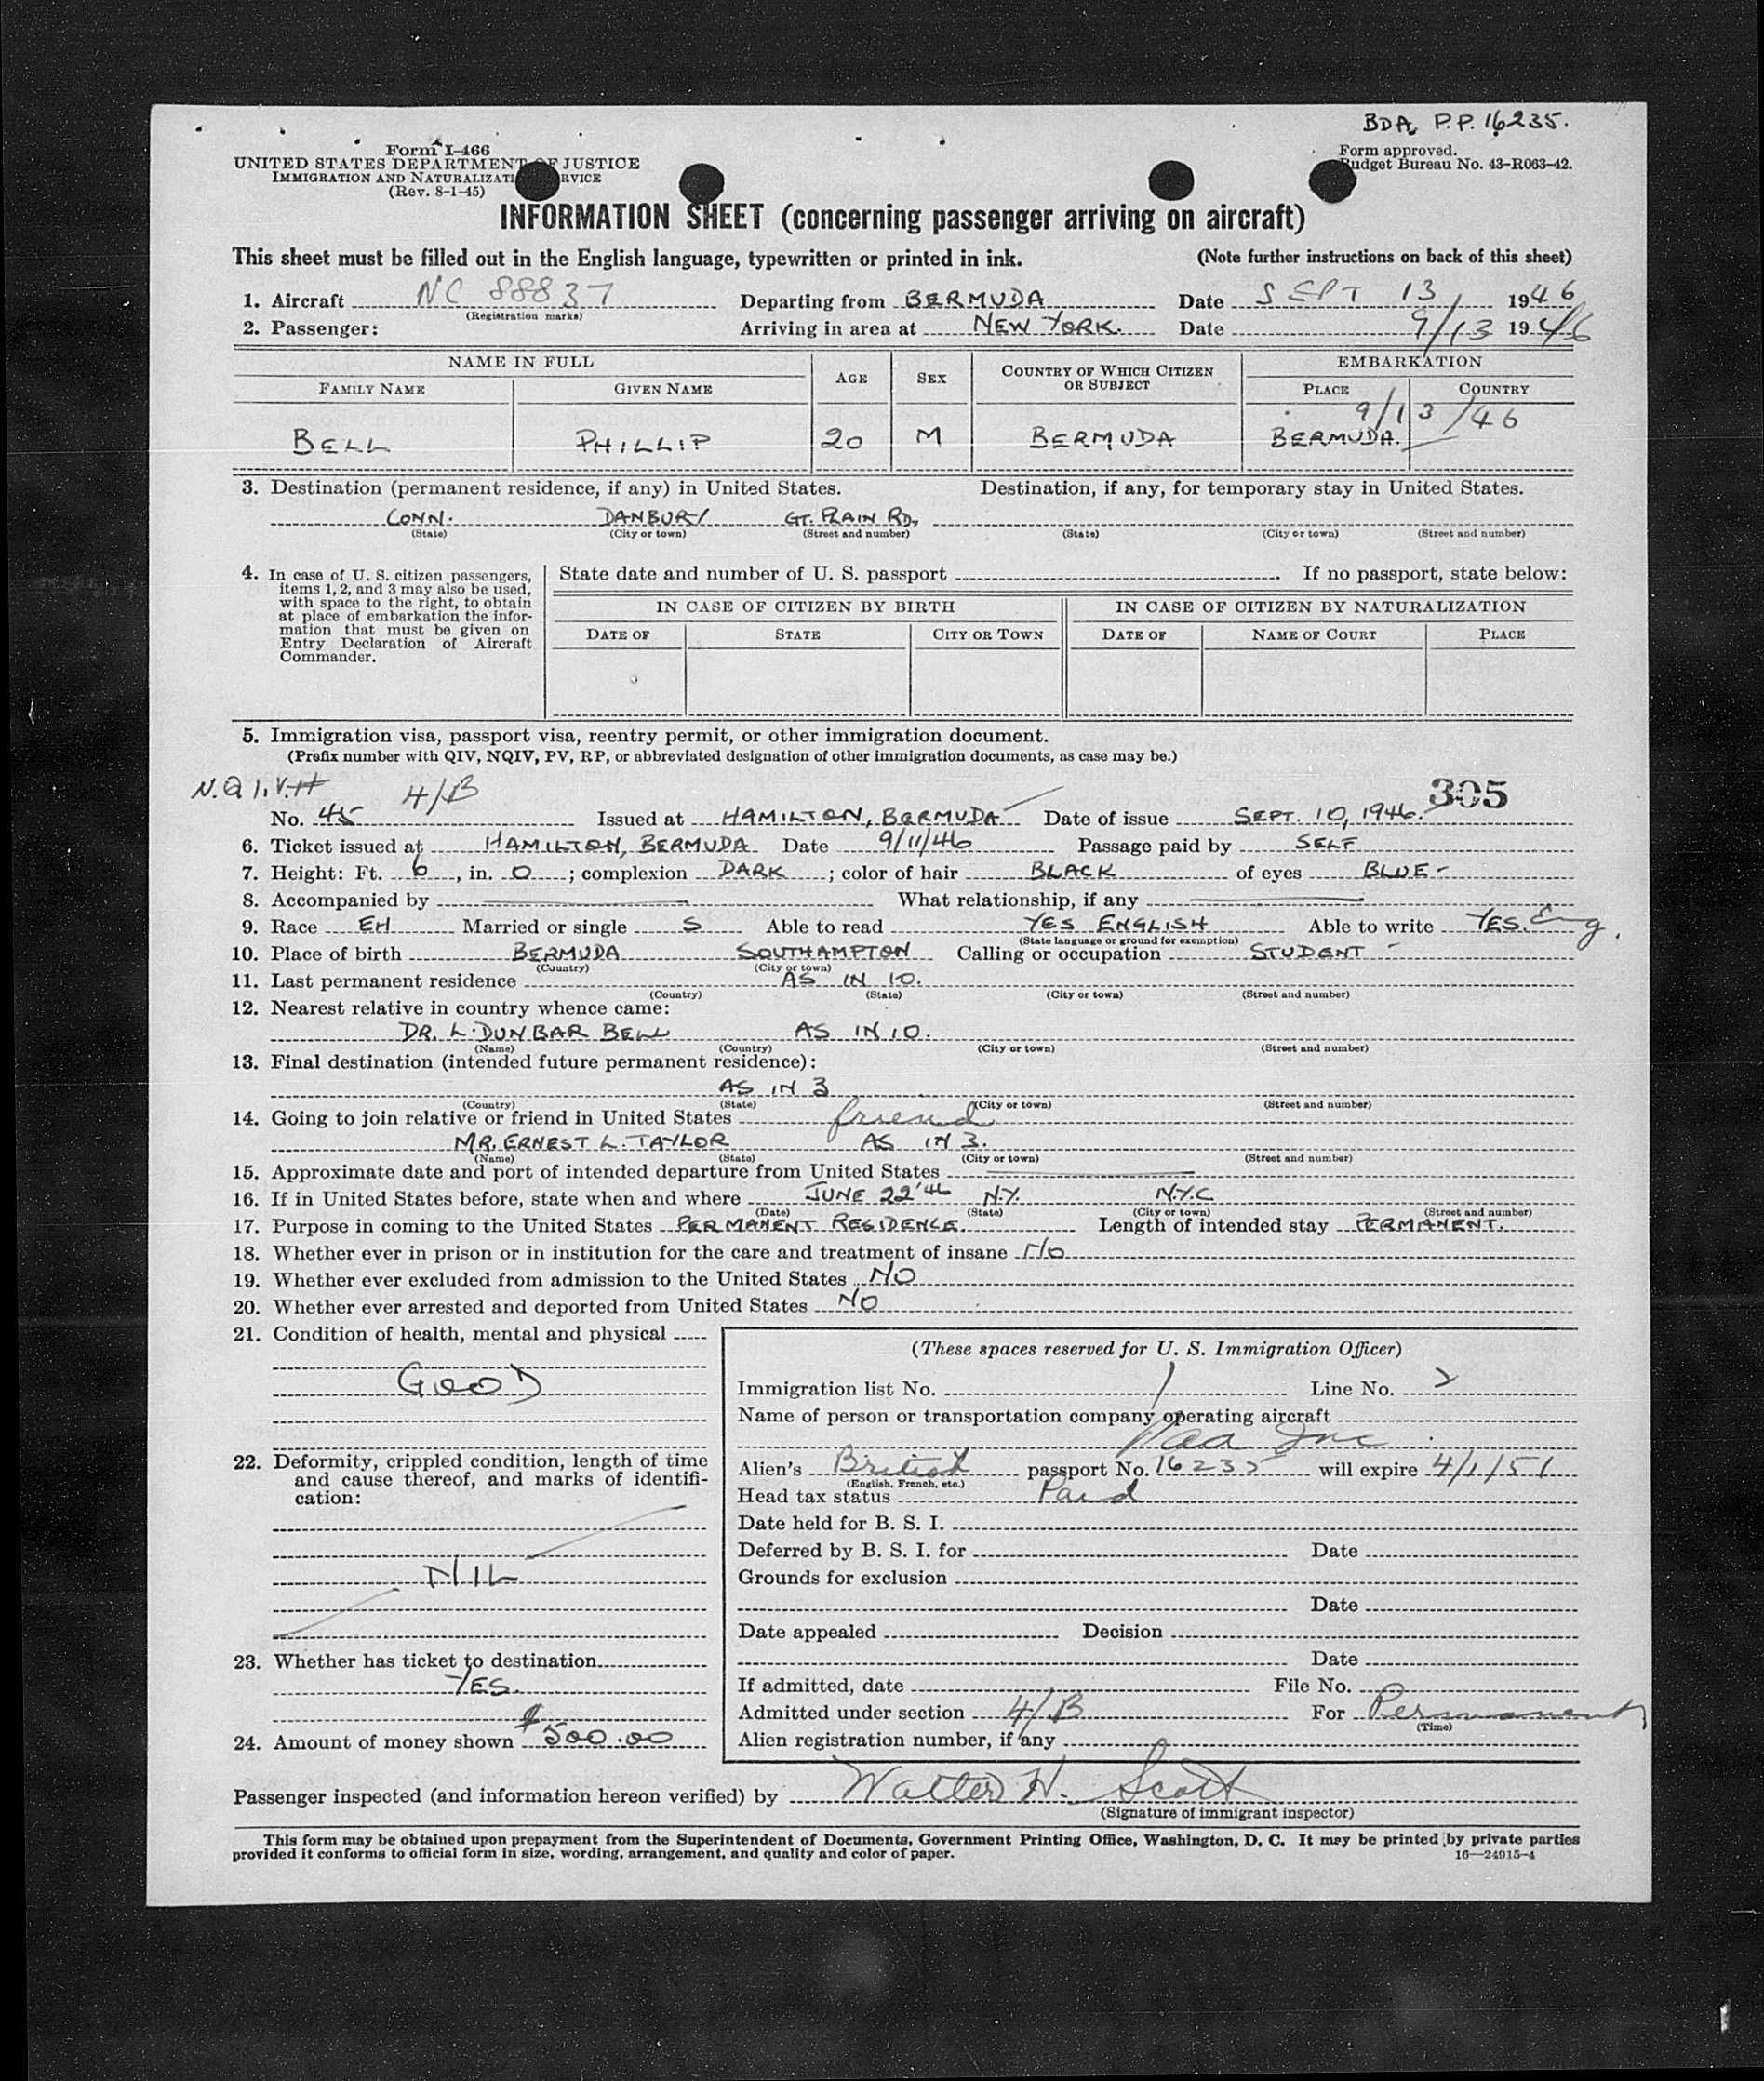 BDA. P.P. 16235.
Form I-466
UNITED STATES DEPARTMENT OF JUSTICE
IMMIGRATION AND NATURALIZATION SERVICE
(Rev. 8-1-45)
Form approved.
Budget Bureau No. 43-R063-42.
INFORMATION SHEET (concerning passenger arriving on aircraft)
This sheet must be filled out in the English language, typewritten or printed in ink. (Note further instructions on back of this sheet)
1. Aircraft NC 88837 Departing from BERMUDA Date SEPT 13, 1946
(Registration marks)
2. Passenger: Arriving in area at NEW YORK. Date 9/13 1946
NAME IN FULL EMBARKATION
FAMILY NAME GIVEN NAME AGE SEX COUNTRY OF WHICH CITIZEN OR SUBJECT PLACE COUNTRY
9/13/46
BELL PHILLIP 20 M BERMUDA BERMUDA.
3. Destination (permanent residence, if any) in United States. Destination, if any, for temporary stay in United States.
CONN. DANBURY GT. PLAIN RD,
(State) (City or town) (Street and number) (State) (City or town) (Street and number)
4. In case of U. S. citizen passengers,
items 1, 2, and 3 may also be used,
with space to the right, to obtain
at place of embarkation the infor-
mation that must be given on
Entry Declaration of Aircraft
Commander.
State date and number of U. S. passport . If no passport, state below:
IN CASE OF CITIZEN BY BIRTH IN CASE OF CITIZEN BY NATURALIZATION
DATE OF STATE CITY OR TOWN DATE OF NAME OF COURT PLACE
5. Immigration visa, passport visa, reentry permit, or other immigration document.
(Prefix number with QIV, NQIV, PV, RP, or abbreviated designation of other immigration documents, as case may be.)
N.Q I.V.# 4/B 305
No. 45 Issued at HAMILTON, BERMUDA Date of issue SEPT. 10, 1946.
6. Ticket issued at HAMILTON, BERMUDA Date 9/11/46 Passage paid by SELF
7. Height: Ft. 6, in. 0; complexion DARK; color of hair BLACK of eyes BLUE-
8. Accompanied by What relationship, if any
9. Race EH Married or single S Able to read YES ENGLISH Able to write YES. Eng.
(State language or ground for exemption)
10. Place of birth BERMUDA SOUTHAMPTON Calling or occupation STUDENT -
(Country) (City or town)
11. Last permanent residence AS IN 10.
(Country) (State) (City or town) (Street and number)
12. Nearest relative in country whence came:
DR. L. DUNBAR BELL AS IN 10.
(Name) (Country) (City or town) (Street and number)
13. Final destination (intended future permanent residence):
AS IN 3
(Country) (State) (City or town) (Street and number)
14. Going to join relative or friend in United States friend
MR. ERNEST L. TAYLOR AS IN 3.
(Name) (State) (City or town) (Street and number)
15. Approximate date and port of intended departure from United States
16. If in United States before, state when and where JUNE 22 '46 N.Y. N.Y.C
(Date) (State) (City or town) (Street and number)
17. Purpose in coming to the United States PERMANENT RESIDENCE. Length of intended stay PERMANENT.
18. Whether ever in prison or in institution for the care and treatment of insane No
19. Whether ever excluded from admission to the United States NO
20. Whether ever arrested and deported from United States NO
21. Condition of health, mental and physical
GOOD
22. Deformity, crippled condition, length of time
and cause thereof, and marks of identifi-
cation:
NIL
23. Whether has ticket to destination
YES.
24. Amount of money shown $500.00
(These spaces reserved for U. S. Immigration Officer)
Immigration list No. 1 Line No. 2
Name of person or transportation company operating aircraft
Paa Inc
Alien's British passport No. 16235 will expire 4/1/51
(English, French, etc.)
Head tax status Paid
Date held for B. S. I.
Deferred by B. S. I. for Date
Grounds for exclusion
Date
Date appealed Decision
Date
If admitted, date File No.
Admitted under section 4/B For Permanent
(Time)
Alien registration number, if any
Passenger inspected (and information hereon verified) by Walter H. Scott
(Signature of immigrant inspector)
This form may be obtained upon prepayment from the Superintendent of Documents, Government Printing Office, Washington, D. C. It may be printed by private parties
provided it conforms to official form in size, wording, arrangement, and quality and color of paper. 16—24915-4